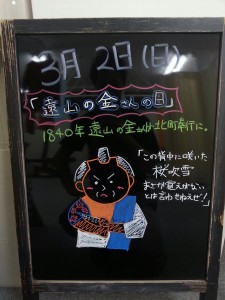 3月 2日(日)
「遠山の金さんの日」
1840年 遠山の金さんが北町奉行に。
「この背中に咲いた
桜吹雪
まさか覚えがねぇ
とは言わせねぇぜ!」